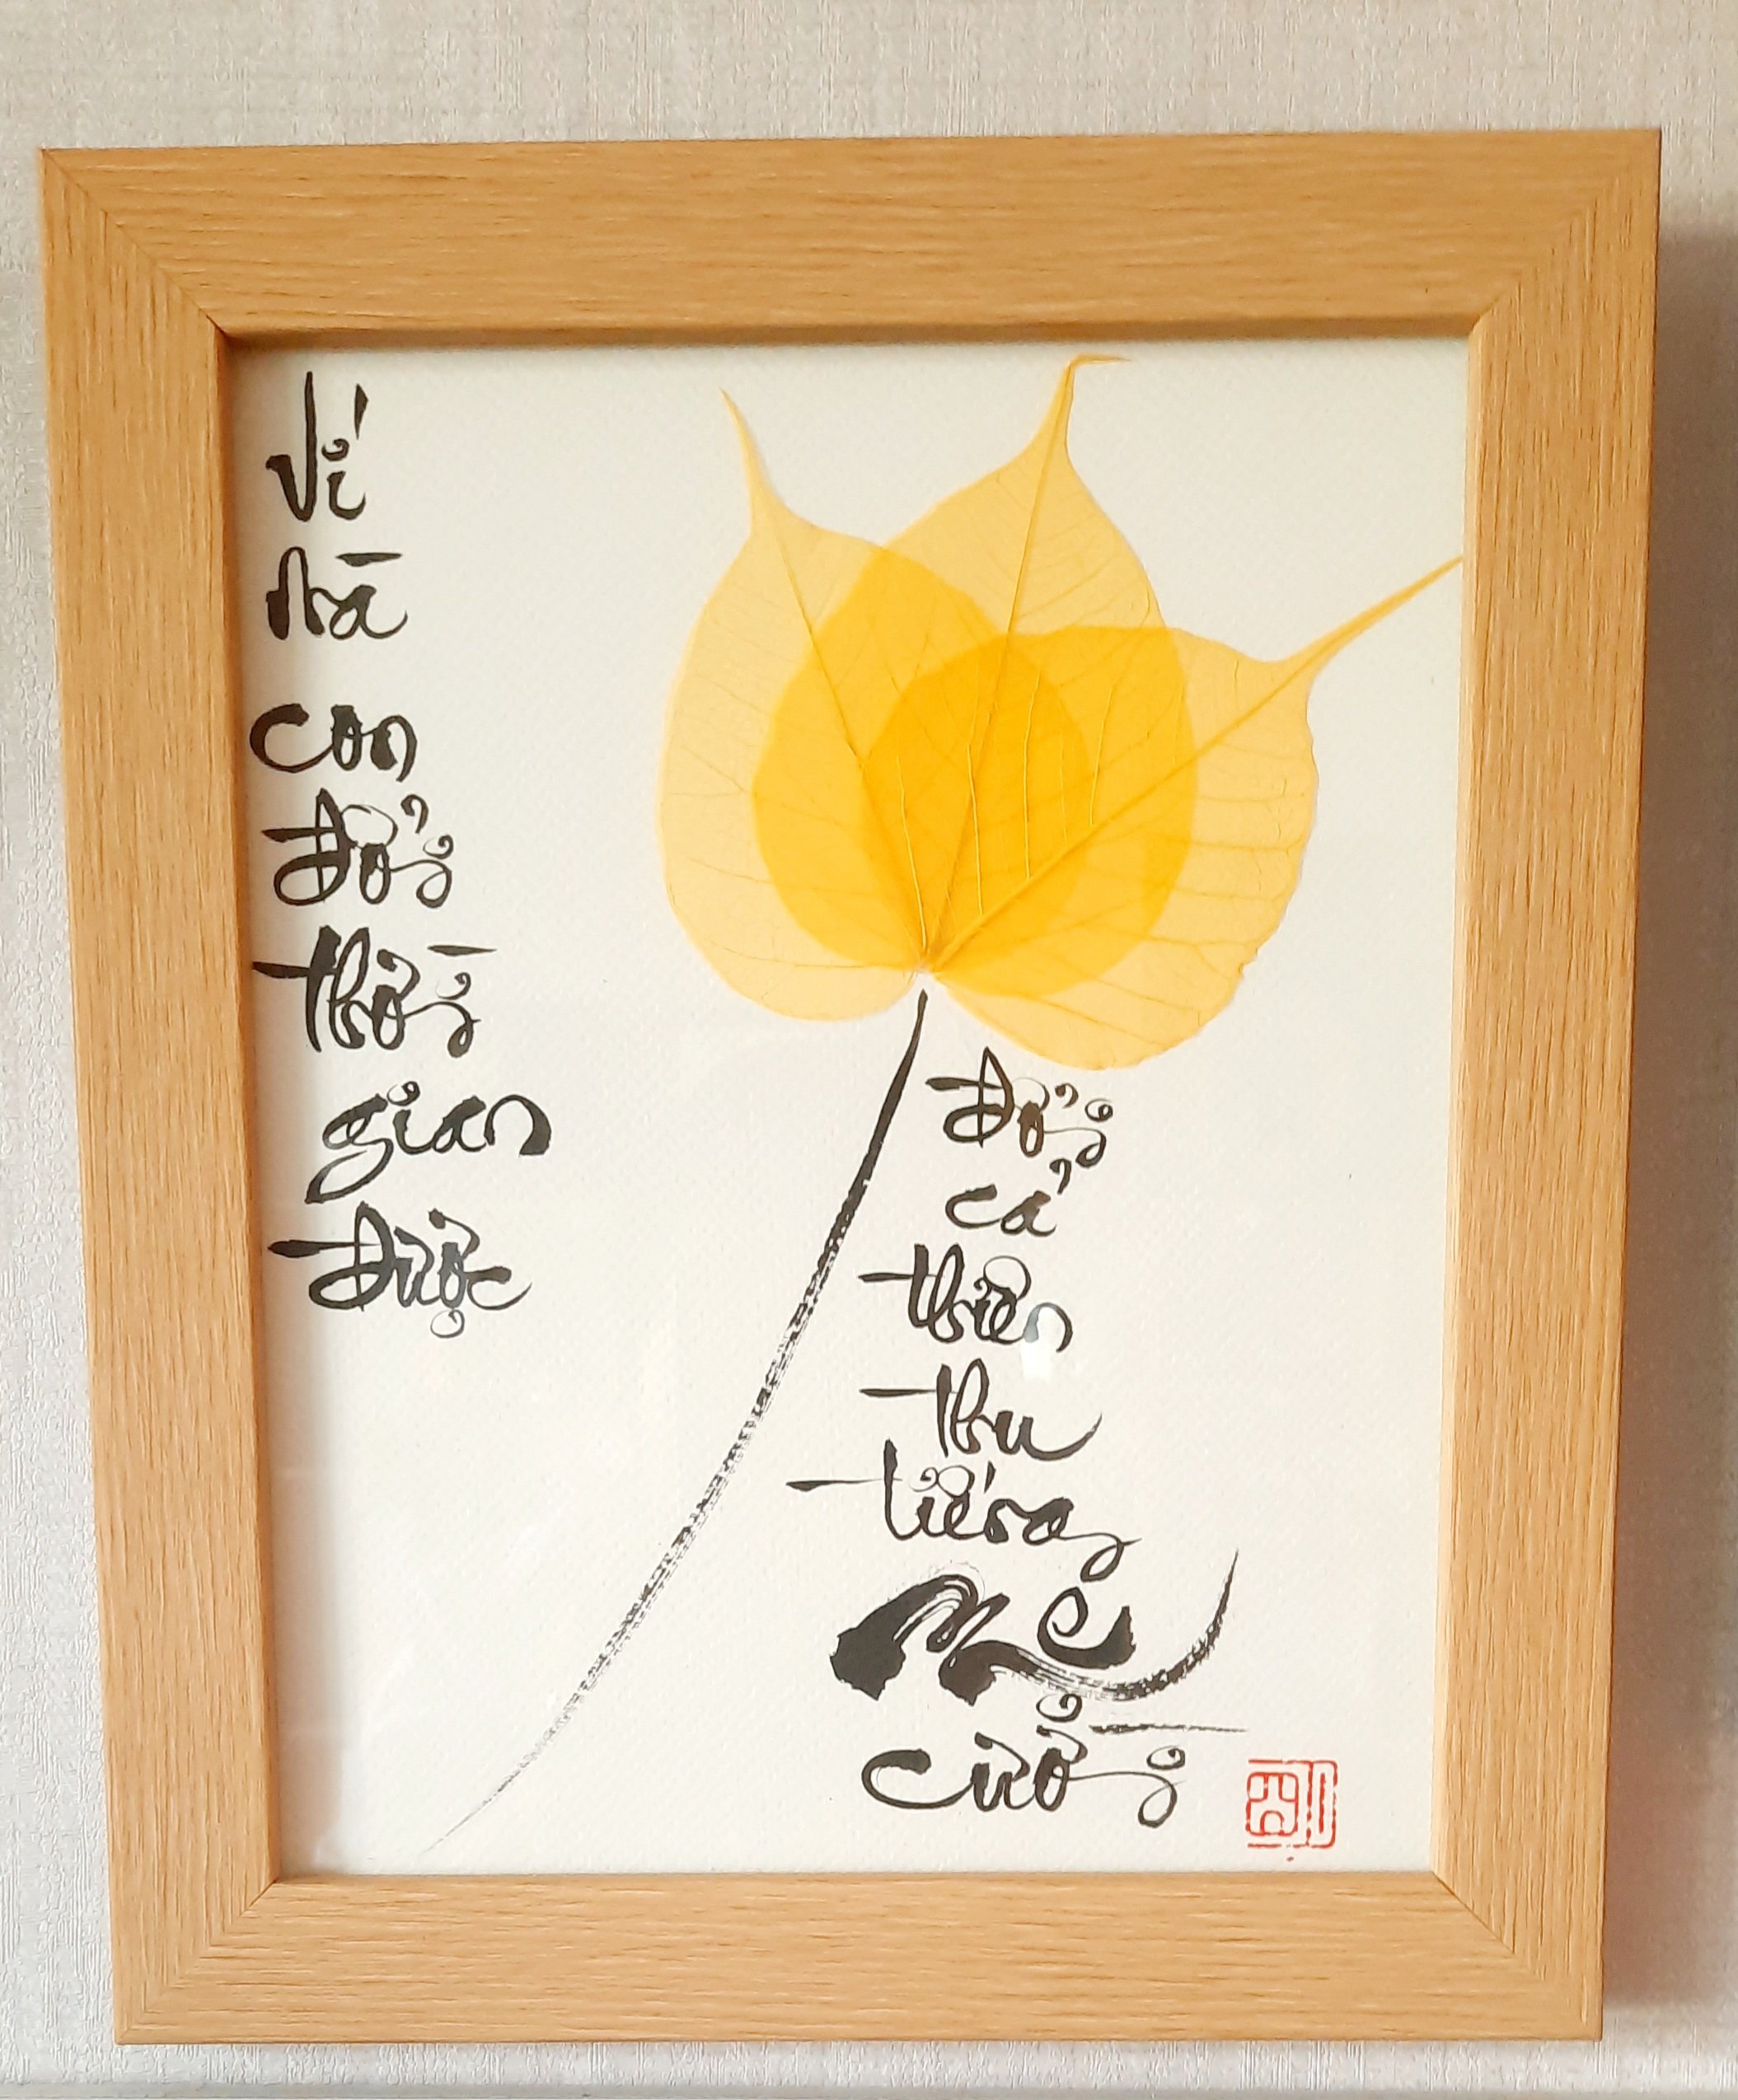 Ví
Mà
con
đổi
thời
gian
Được
Đổi
cả
thiên
thu
tiếng
Mẹ
cười